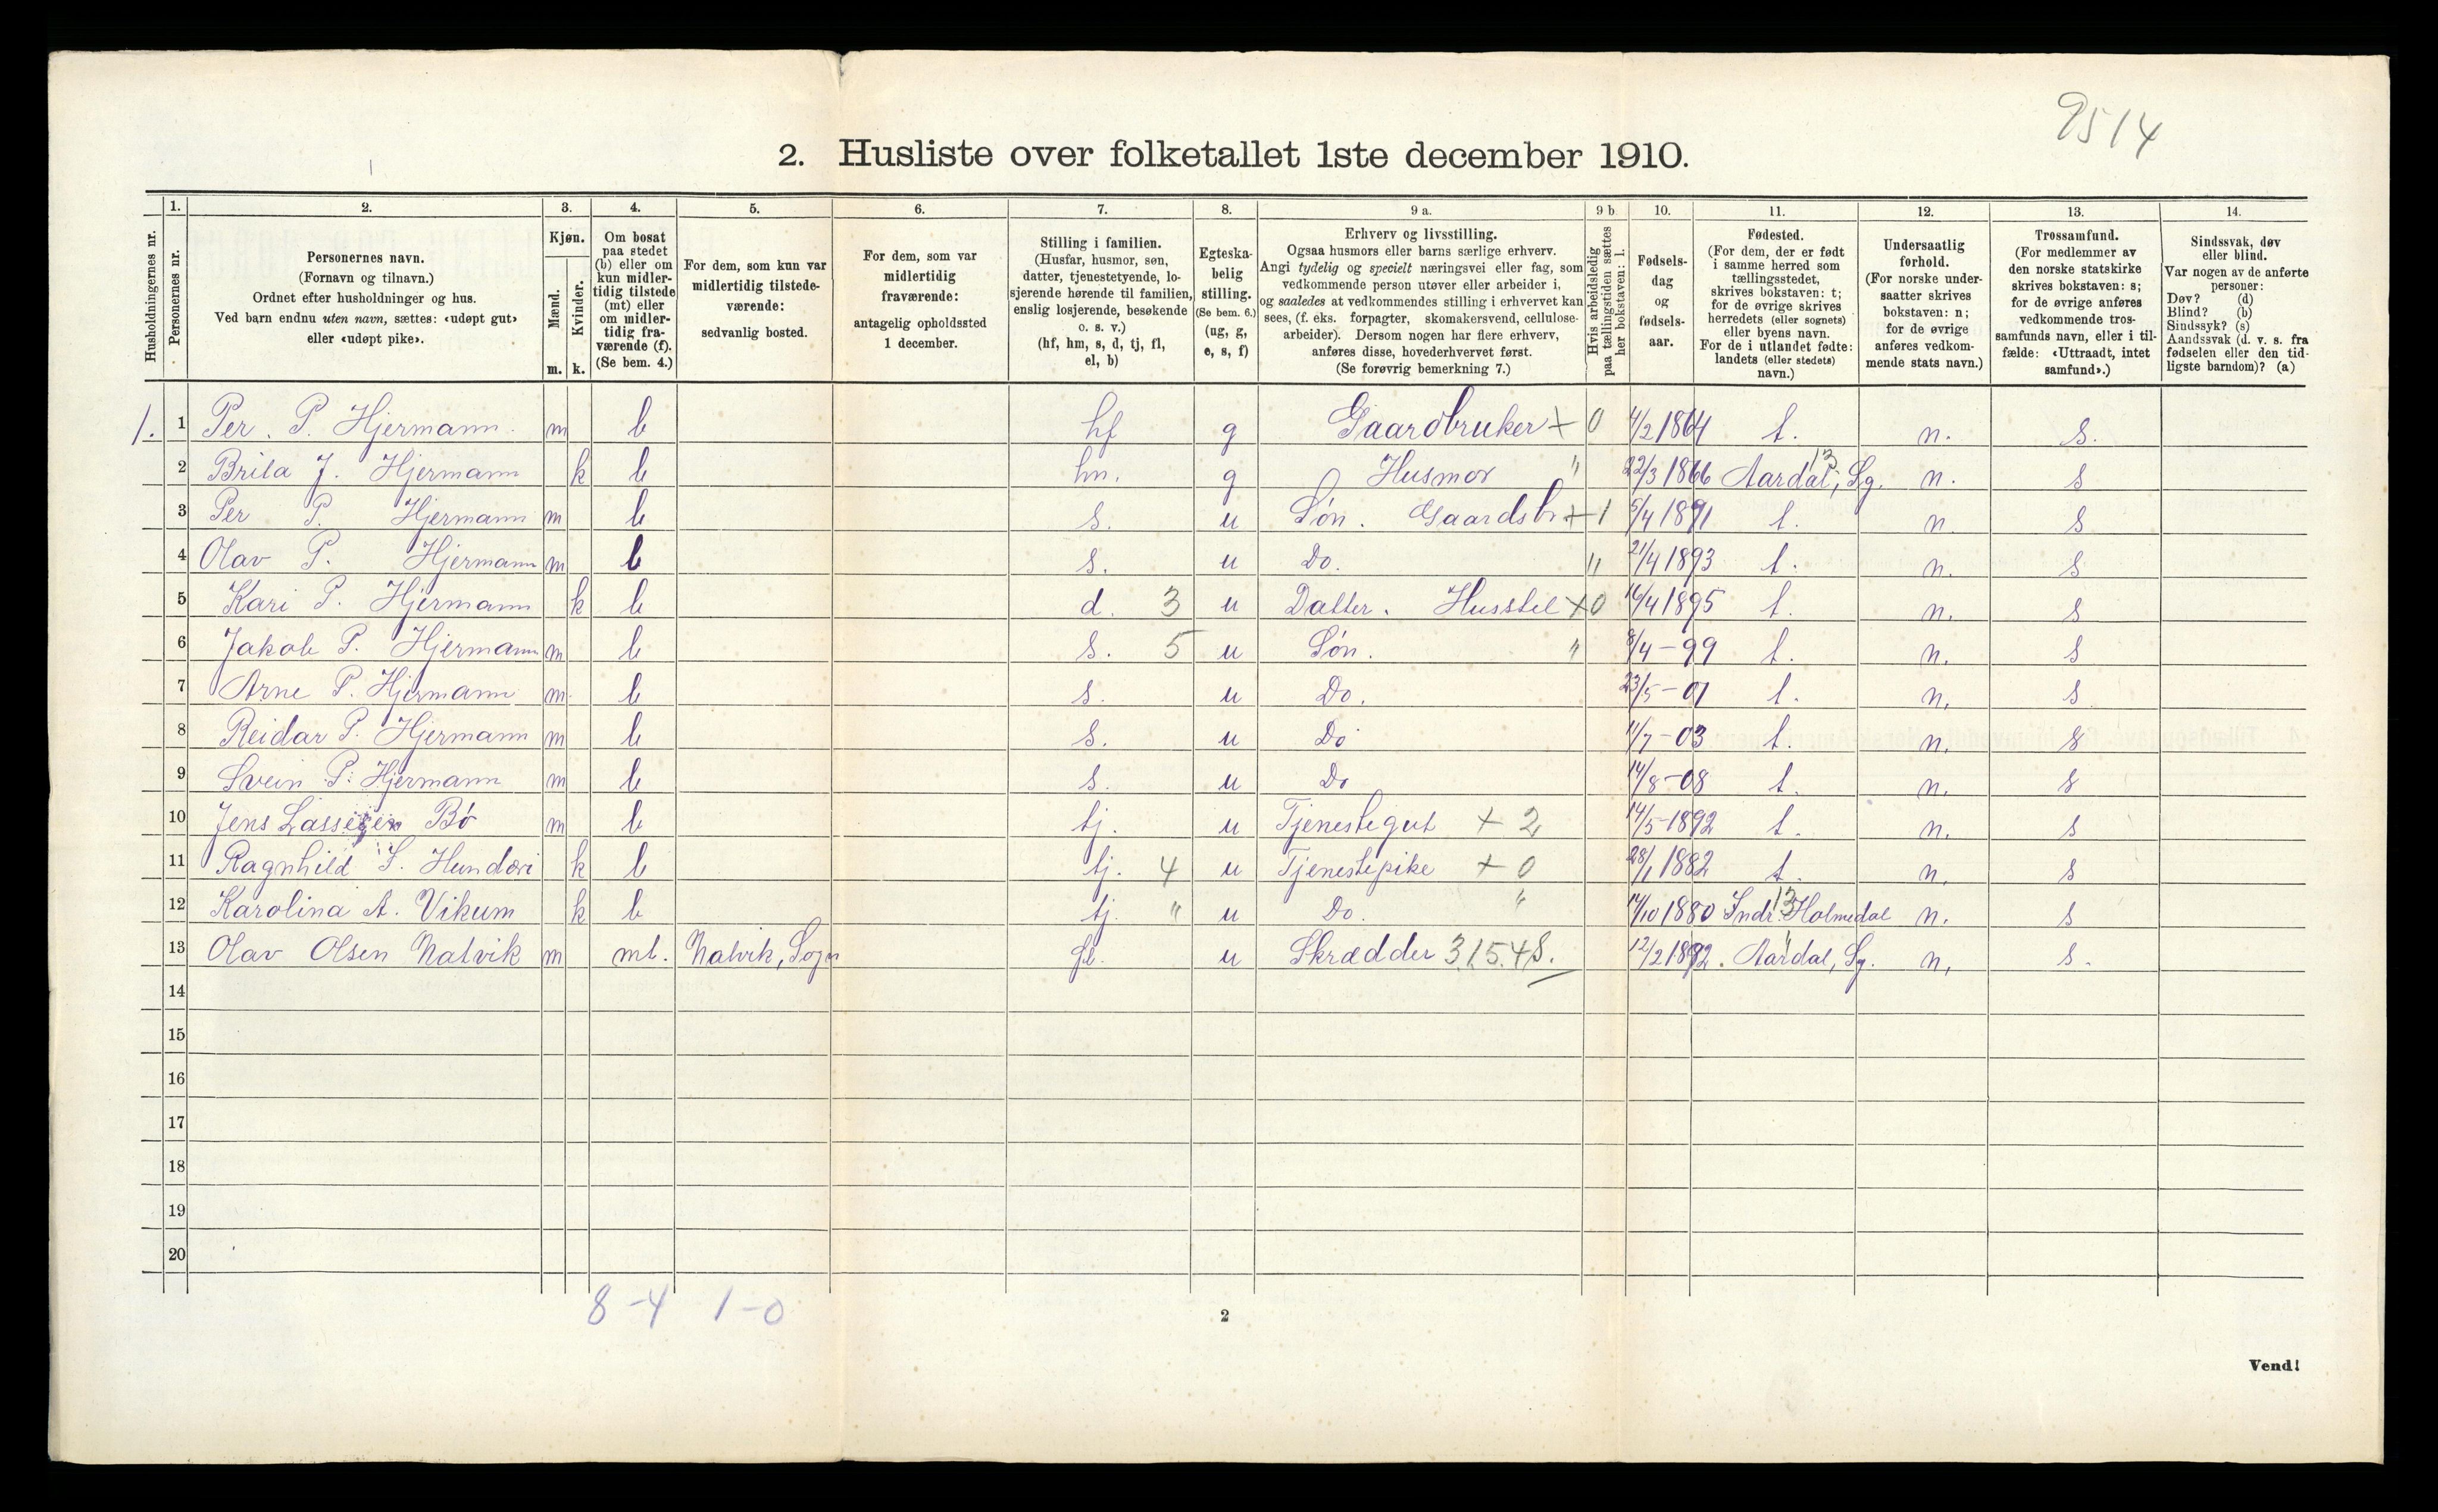 9514
2. Husliste over folketallet 1ste december 1910.
1. 2. 3. 4. 5. 6. 7. 8. 9 a. 9 b 10. 11. 12. 13. 14.
Husholdningernes nr.
Personernes nr.
Personernes navn.
(Fornavn og tilnavn.)
Ordnet efter husholdninger og hus.
Ved barn endnu uten navn, sættes: «udøpt gut»
eller «udøpt pike».
Kjøn.
Mænd.
Kvinder.
m. k.
Om bosat
paa stedet
(b) eller om
kun midler-
tidig tilstede
(mt) eller
om midler-
tidig fra-
værende (f).
(Se bem. 4.)
For dem, som kun var
midlertidig tilstede-
værende:
sedvanlig bosted.
For dem, som var
midlertidig
fraværende:
antagelig opholdssted
1 december.
Stilling i familien.
(Husfar, husmor, søn,
datter, tjenestetyende, lo-
sjerende hørende til familien,
enslig losjerende, besøkende
o. s. v.)
(hf, hm, s, d, tj, fl,
el, b)
Egteska-
belig
stilling.
(Se bem. 6.)
(ug, g,
e, s, f)
Erhverv og livsstilling.
Ogsaa husmors eller barns særlige erhverv.
Angi tydelig og specielt næringsvei eller fag, som
vedkommende person utøver eller arbeider i,
og saaledes at vedkommendes stilling i erhvervet kan
sees, (f. eks. forpagter, skomakersvend, cellulose-
arbeider). Dersom nogen har flere erhverv,
anføres disse, hovederhvervet først.
(Se forøvrig bemerkning 7.)
Hvis arbeidsledig
paa tællingstiden sættes
her bokstaven: l.
Fødsels-
dag
og
fødsels-
aar.
Fødested.
(For dem, der er født
i samme herred som
tællingsstedet,
skrives bokstaven: t;
for de øvrige skrives
herredets (eller sognets)
eller byens navn.
For de i utlandet fødte:
landets (eller stedets)
navn.)
Undersaatlig
forhold.
(For norske under-
saatter skrives
bokstaven: n;
for de øvrige
anføres vedkom-
mende stats navn.)
Trossamfund.
(For medlemmer av
den norske statskirke
skrives bokstaven: s;
for de øvrige anføres
vedkommende tros-
samfunds navn, eller i til-
fælde: «Uttraadt, intet
samfund».)
Sindssvak, døv
eller blind.
Var nogen av de anførte
personer:
Døv? (d)
Blind? (b)
Sindssyk? (s)
Aandssvak (d. v. s. fra
fødselen eller den tid-
ligste barndom)? (a)
1. 1 Per. P. Hjermann m b hf g Gaardbruker + 0 4/2 1864 t. n. s.
2 Brita J. Hjermann k b hm. g Husmor " 22/3 1866 Aardal, Sg. 13 n. s
3 Per P. Hjermann m b s. u Søn. Gaardsbr + 1 5/4 1891 t. n s
4 Olav P. Hjermann m b s. u Do. " 21/4 1893 t. n. s
5 Kari P. Hjermann k b d. 3 u Datter. Husstel + 0 16/4 1895 t. n. s
6 Jakob P. Hjermann m b s. 5 u Søn. " 8/4 - 99 t. n. s
7 Arne P. Hjermann m. b s. u Do. 23/5 - 01 t. n. s
8 Reidar P. Hjermann m b s. u Do 11/7 - 03 t. n. s
9 Svein P. Hjermann m b s. u Do 14/8 - 08 t. n. s
10 Jens Lassesen Bö m b tj. u Tjenestegut + 2 14/5 - 1892 t. n. s
11 Ragnhild S. Hundere k b tj. 4 u Tjenestepike + 0 28/1 1882 t. n. s
12 Karolina A. Vikum k b tj. " u Do. " 14/10 1880 Indr. Holmedal 13 n. s
13 Olav Olsen Natvik m mt. Natvik, Sogn fl. u Skrædder 3.15.4 S. 12/2 1892. Aardal, Sg. n. s.
14
15
16
17
18
19
20
8 - 4 1 - 0
2
Vend!